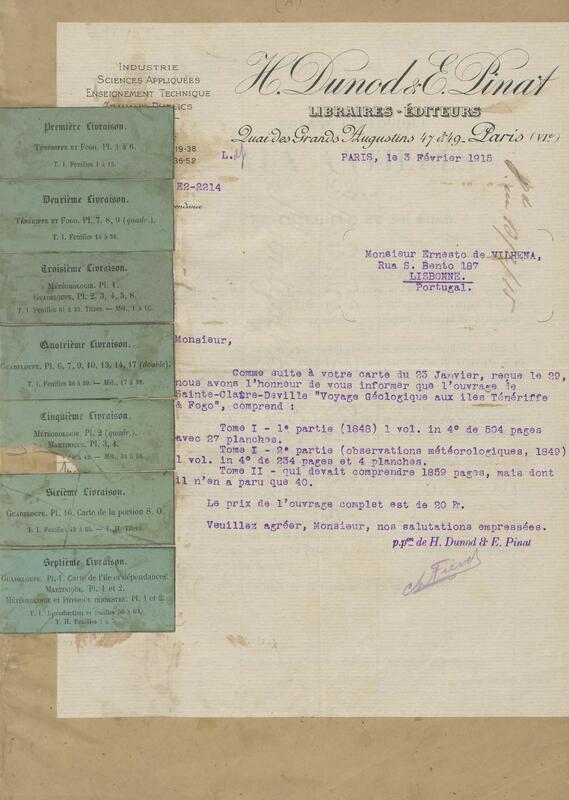 INDUSTRIE
SCIENCES APPLIQUÉES
ENSEIGNEMENT TECHNIQUE
TRAVAUX PUBLICS
H. Dunod & E. Pinat
LIBRAIRES-ÉDITEURS
Quai des Grands Augustins 47 & 49. Paris (VIe)
19-38
36-52
L.
PARIS, le 3 Février 1915
E2-2214
Monsieur Ernesto de VILHENA,
Rua S. Bento 187
LISBONNE.
Portugal.
Monsieur,
Comme suite à votre carte du 23 Janvier, reçue le 29,
nous avons l'honneur de vous informer que l'ouvrage de
Sainte-Claire-Deville "Voyage Géologique aux iles Ténériffe
& Fogo", comprend :
Tome I - 1e partie (1848) 1 vol. in 4° de 504 pages
avec 27 planches.
Tome I - 2e partie (observations météorologiques, 1849)
1 vol. in 4° de 234 pages et 4 planches.
Tome II - qui devait comprendre 1859 pages, mais dont
il n'en a paru que 40.
Le prix de l'ouvrage complet est de 20 Fr.
Veuillez agréer, Monsieur, nos salutations empressées.
p.pon de H. Dunod & E. Pinat
Première Livraison.
TÉNÉRIFFE ET FOGO. Pl. 1 à 6.
T. I. Feuilles 1 à 15.
Deuxième Livraison.
TÉNÉRIFFE ET FOGO. Pl. 7, 8, 9 (quadr.).
T. I. Feuilles 16 à 30.
Troisième Livraison.
MÉTÉOROLOGIE. Pl. 1.
GUADELOUPE. Pl. 2, 3, 4, 5, 8.
T. I. Feuilles 31 à 35. Titres. — Mét., 1 à 16.
Quatrième Livraison.
GUADELOUPE. Pl. 6, 7, 9, 10, 13, 14, 17 (double).
T. I. Feuilles 36 à 39. — Mét., 17 à 29.
Cinquième Livraison.
MÉTÉOROLOGIE. Pl. 2 (quadr.).
MARTINIQUE. Pl. 3, 4.
Sixième Livraison.
GUADELOUPE. Pl. 16. Carte de la portion S. O.
Septième Livraison.
GUADELOUPE. Pl. 1. Carte de l'île et dépendances.
MARTINIQUE. Pl. 1 et 2.
MÉTÉOROLOGIE ET PHYSIQUE TERRESTRE. Pl. 1 et 2.
T. I. Introduction et feuilles 56 à 63.
T. II. Feuilles 1 à 5.